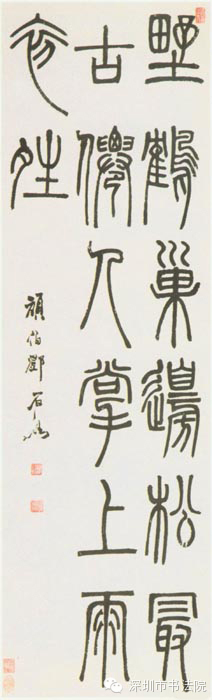 野鶴巢邊松最
古僊人掌上雨
初夝
頑伯鄧石如
深圳市书法院